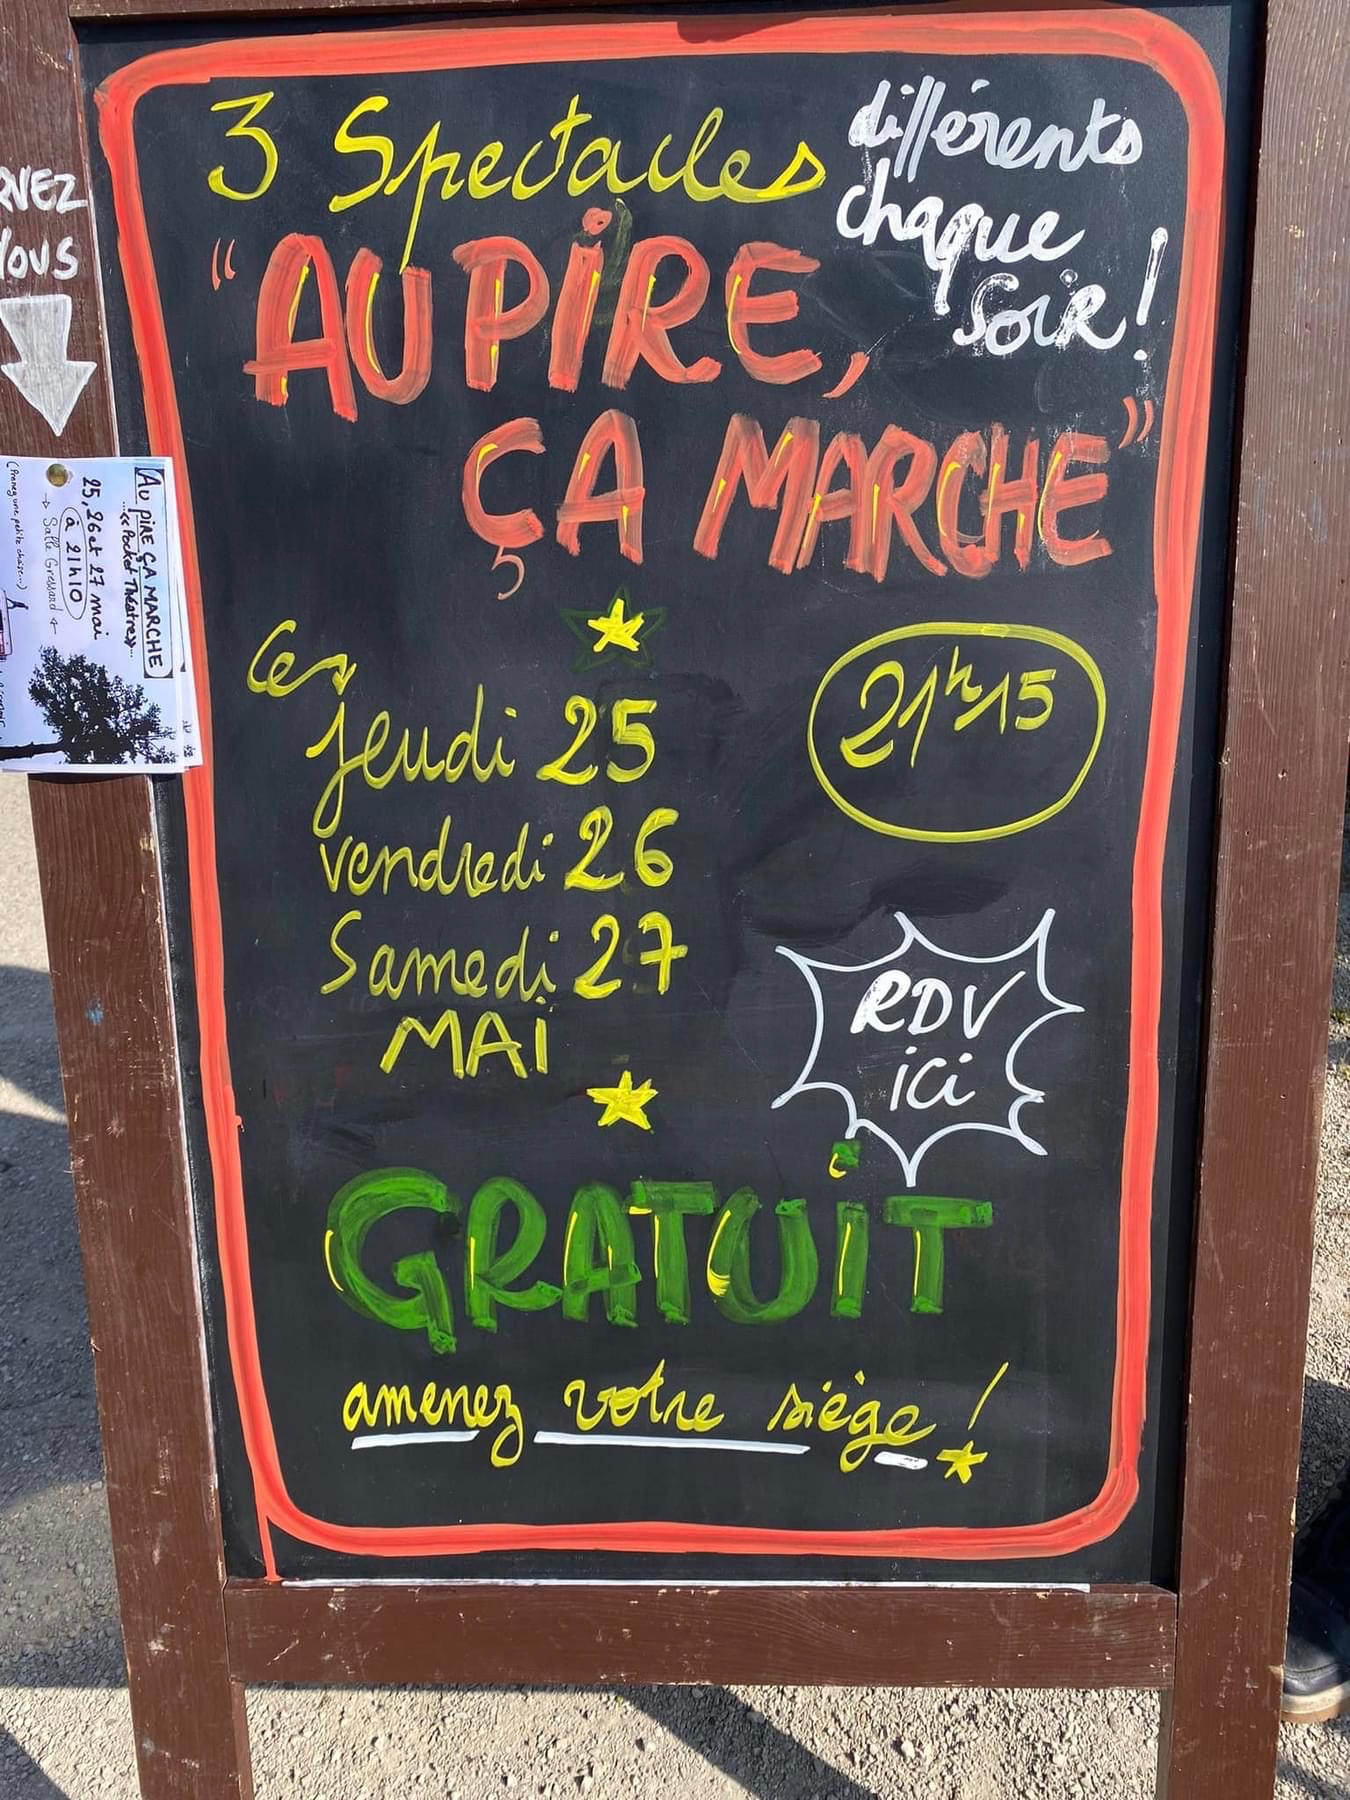 3 Spectacles
différents
chaque
soir !
"AU PIRE,
ÇA MARCHE"
Ces
jeudi 25
vendredi 26
Samedi 27
MAI
21h15
RDV
ici
GRATUIT
amenez votre siège !
VEZ
VOUS
AU PIRE ÇA MARCHE
...«Pocket Théatre»...
25, 26 et 27 mai
à 21h10
→ Salle Gressard ←
(Prenez une petite chaise...)